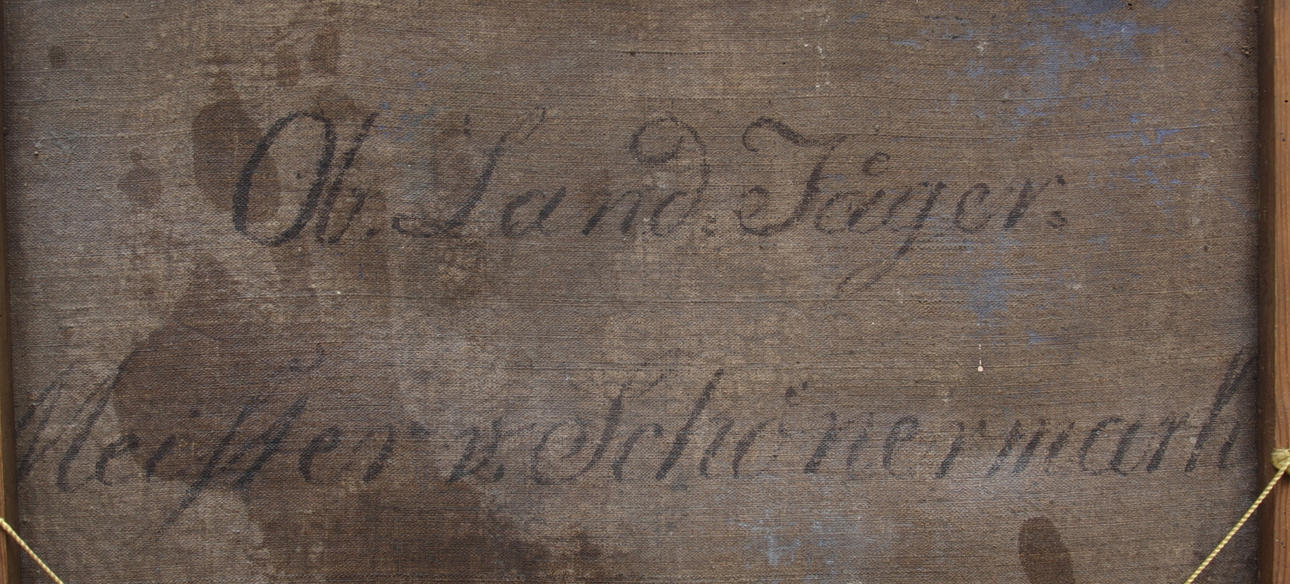 Ob. Land: Jäger:
Meister v: Schönermark